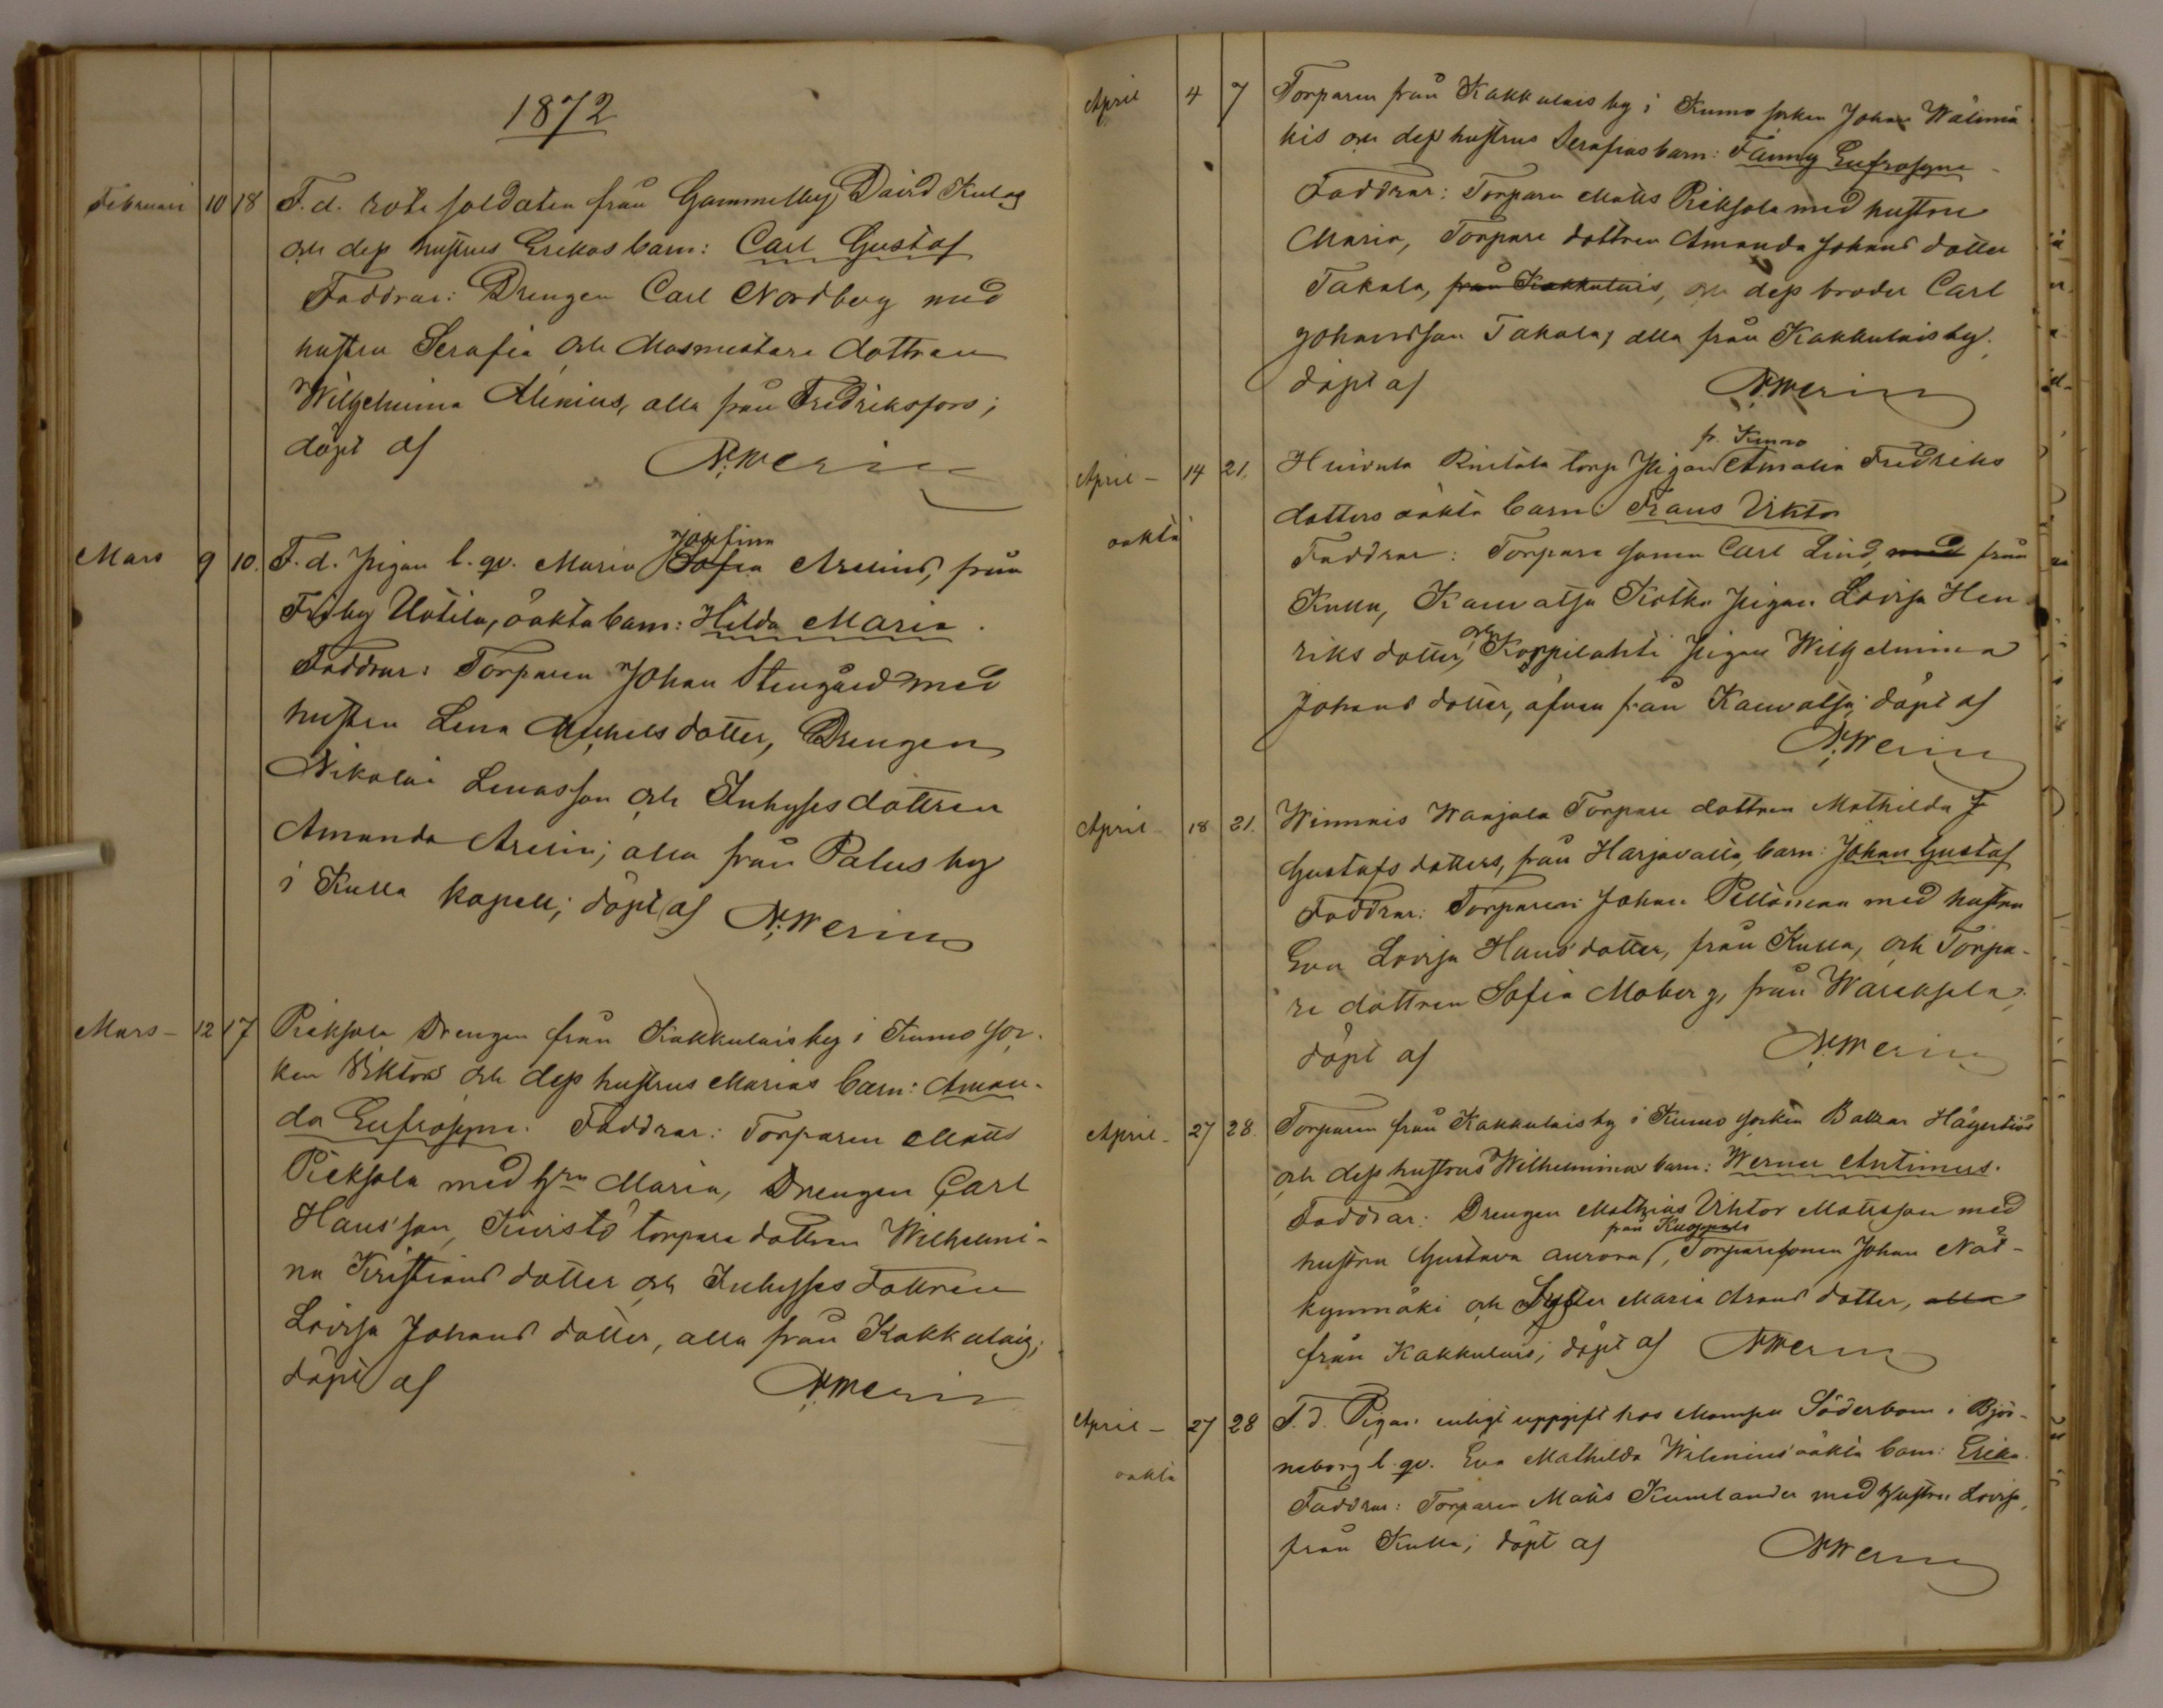 1872
Februari 10 18 F.d. rote soldaten från Gammelby David Kulag
och dess hustrus Erikas barn: Carl Gustaf
Faddrar: Drengen Carl Nordberg med
hustru Serafia och Masmästare dottren
Wilhelmina Alenius, alla från Fredriksfors;
döpt af N. Werin
Mars 9 10. F.d. pigan l. qv. Maria Josefina Sofia Arelius, från
Friby Uotila, oäkta barn: Hilda Maria.
Faddrar: Torparen Johan Stengård med
hustru Lena Michelsdotter, Drengen
Nikolai Lenasson och Inhyses dottren
Amanda Arelin; alla från Palus by
i Kulla kapell; döpt af N. Werin
Mars – 12 17 Pieksala Drengen från Kakkulais by i Kumo soc-
ken Viktors och dess hustrus Marias barn: Aman-
da Eufrosyne. Faddrar: Torparen Matts
Pieksala med hru Maria, Drengen Carl
Hansson, Kuristo torpare dottren Wilhelmi-
na Kristians dotter och Inhysses dottren
Lovisa Johans dotter, alla från Kakkulais;
döpt af N. Werin
April 4 7 Torparen från Kakkulais by i Kumo socken Johan Wälimä
kis och dess hustrus Serafias barn: Fanny Eufrosyne
Faddrar: Torparen Matts Pieksala med hustru
Maria, Torpare dottren Amanda Johans dotter
Takala, från Kakkulais, och dess broder Carl
Johansson Takala; alla från Kakkulais by.
döpt af N. Werin
April – 14 21. Huivula Rintala torp Pigan fr. Kumo Amalia Fredriks
oäkta dotters oäkta barn: Frans Viktor
Faddrar: Torpare sonen Carl Lind, med från
Kulla, Kauvatsa Kotka pigan Lovisa Hen
riks dotter, och Koppilahti pigan Wilhelmina
Johans dotter, äfven från Kauvatsa; döpt af
N. Werin
April – 18 21. Winnais Wanjala Torpare dottren Mathilda J
Gustafs dotters, från Harjavalta, barn: Johan Gustaf
Faddrar: Torparen Johan Pellonen med hustru
Eva Lovisa Hans dotter, från Kulla, och Torpa-
re dottren Sofia Moberg, från Wareksela;
döpt af N. Werin
April – 27 28. Torparen från Kakkulais by i Kumo socken Baltzar Hägerti
och dess hustrus Wilhelminas barn: Werner Antimus.
Faddrar: Drengen Mathias Viktor Matsson med
hustru Gustava Aurora från Kuoppala, Torparesonen Johan Nät-
kynmäki och Syster Maria Arons dotter, alla
från Kakkulais; döpt af N. Werin
April – 27 28 F.d. Pigan enligt uppgift hos Mamsell Söderbom i Björ-
oäkta neborg l. qv. Eva Mathilda Wilenius oäkta barn: Erika.
Faddrar: Torparen Matts Kumlander med hustru Lovisa,
från Kulla; döpt af N. Werin